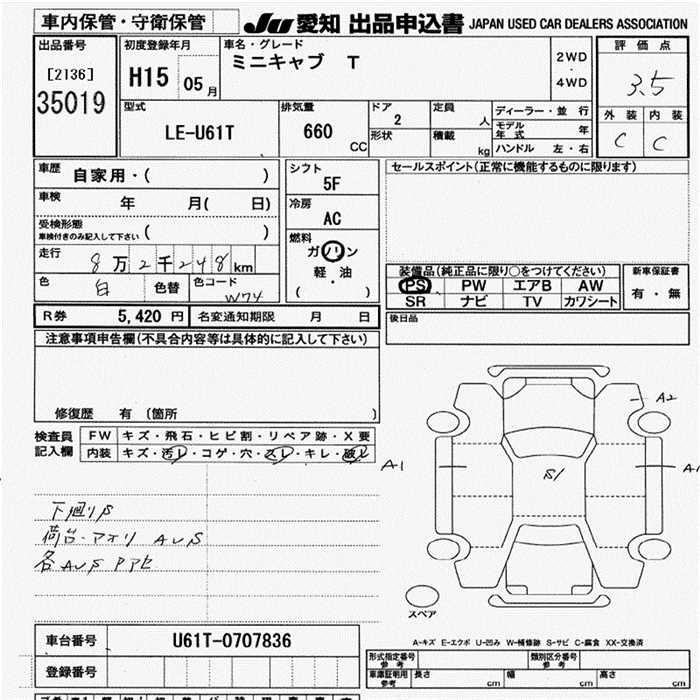 車内保管・守衛保管
JU 愛知 出品申込書 JAPAN USED CAR DEALERS ASSOCIATION
出品番号
[2136]
35019
初度登録年月
H15 05月
車名・グレード
ミニキャブ T
2WD
・
4WD
評価点
3.5
外装 内装
C C
型式
LE-U61T
排気量
660 CC
ドア
2
形状
定員 人
積載 kg
ディーラー・並行
モデル年式 年
ハンドル 左・右
車歴
自家用・( )
車検 年 月( 日)
受検形態
車検付きのみ記入して下さい ( )
走行
8万2千248km
色 白 色替 色コード W74
シフト
5F
冷房
AC
燃料
ガソリン
軽・油
( )
セールスポイント(正常に機能するものに限ります)
装備品(純正品に限り○をつけてください)
PS PW エアB AW
SR ナビ TV カワシート
新車保証書
有・無
R券 5,420円 名変通知期限 月 日
後日品
注意事項申告欄(不具合内容等は具体的に記入して下さい)
修復歴 有 (箇所 )
検査員記入欄
FW キズ・飛石・ヒビ割・リペア跡・X要
内装 キズ・汚レ・コゲ・穴・スレ・キレ・破レ
下廻りS
荷台・アオリ AUS
各AUS PアE
A2
A1
S1
A1
スペア
A-キズ E-エクボ U-凹み W-補修跡 S-サビ C-腐食 XX-交換済
車台番号 U61T-0707836
登録番号
形式指定番号 参考
類別区分番号 参考
車庫証明用 参考
長さ cm 幅 cm 高さ cm